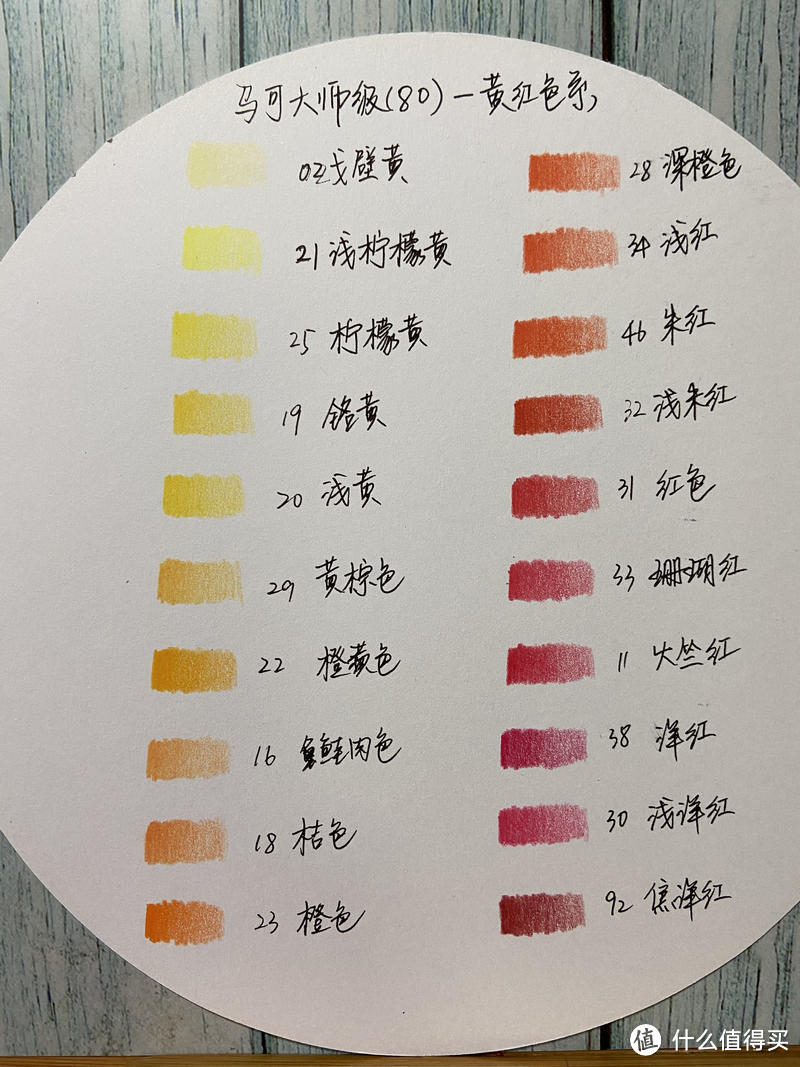 马可大师级(80)一黄红色系
02浅壁黄
21 浅柠檬黄
25 柠檬黄
19 铬黄
20 浅黄
29 黄棕色
22 橙黄色
16 鲑肉色
18 桔色
23 橙色
28 深橙色
34 浅红
46 朱红
32 浅朱红
31 红色
33 珊瑚红
11 大竺红
38 洋红
30 浅洋红
92 焦洋红
值 什么值得买